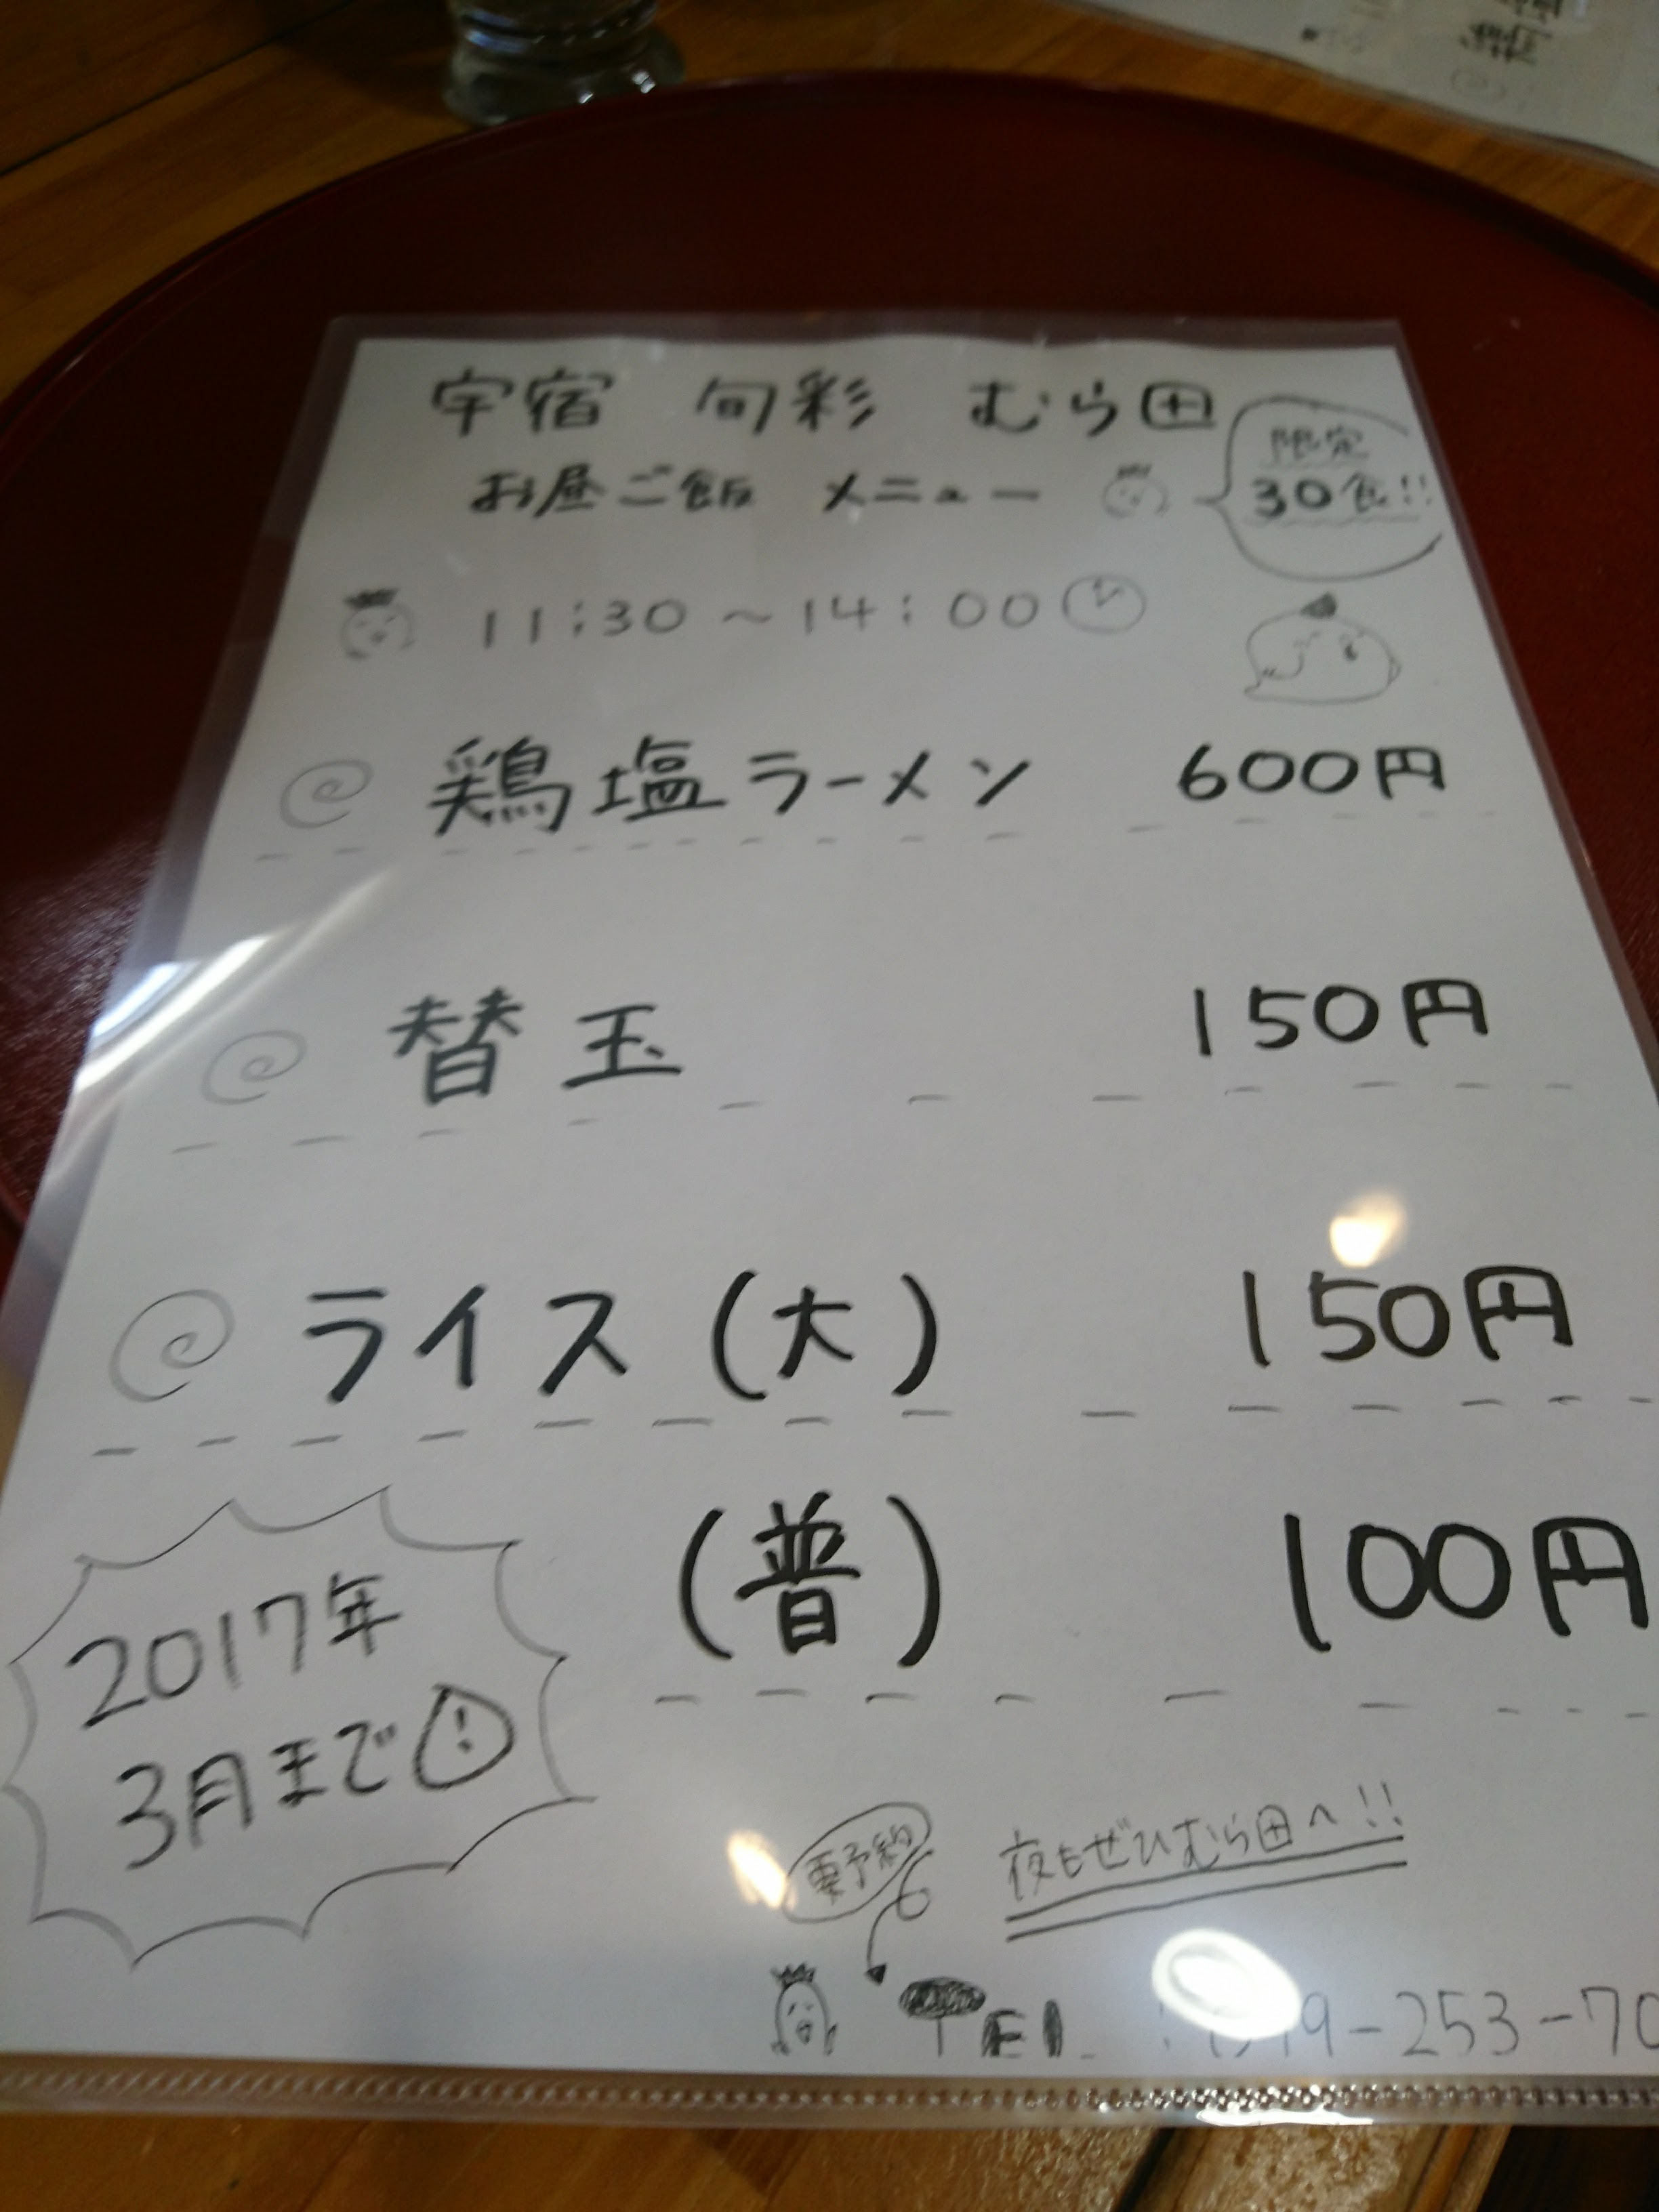 宇宿 旬彩 むら田
限定
30食!!
お昼ご飯 メニュー
11:30～14:00
鶏塩ラーメン 600円
替玉 150円
ライス(大) 150円
(普) 100円
2017年
3月まで!
要予約
夜もぜひむら田へ!!
TEL : 099-253-70